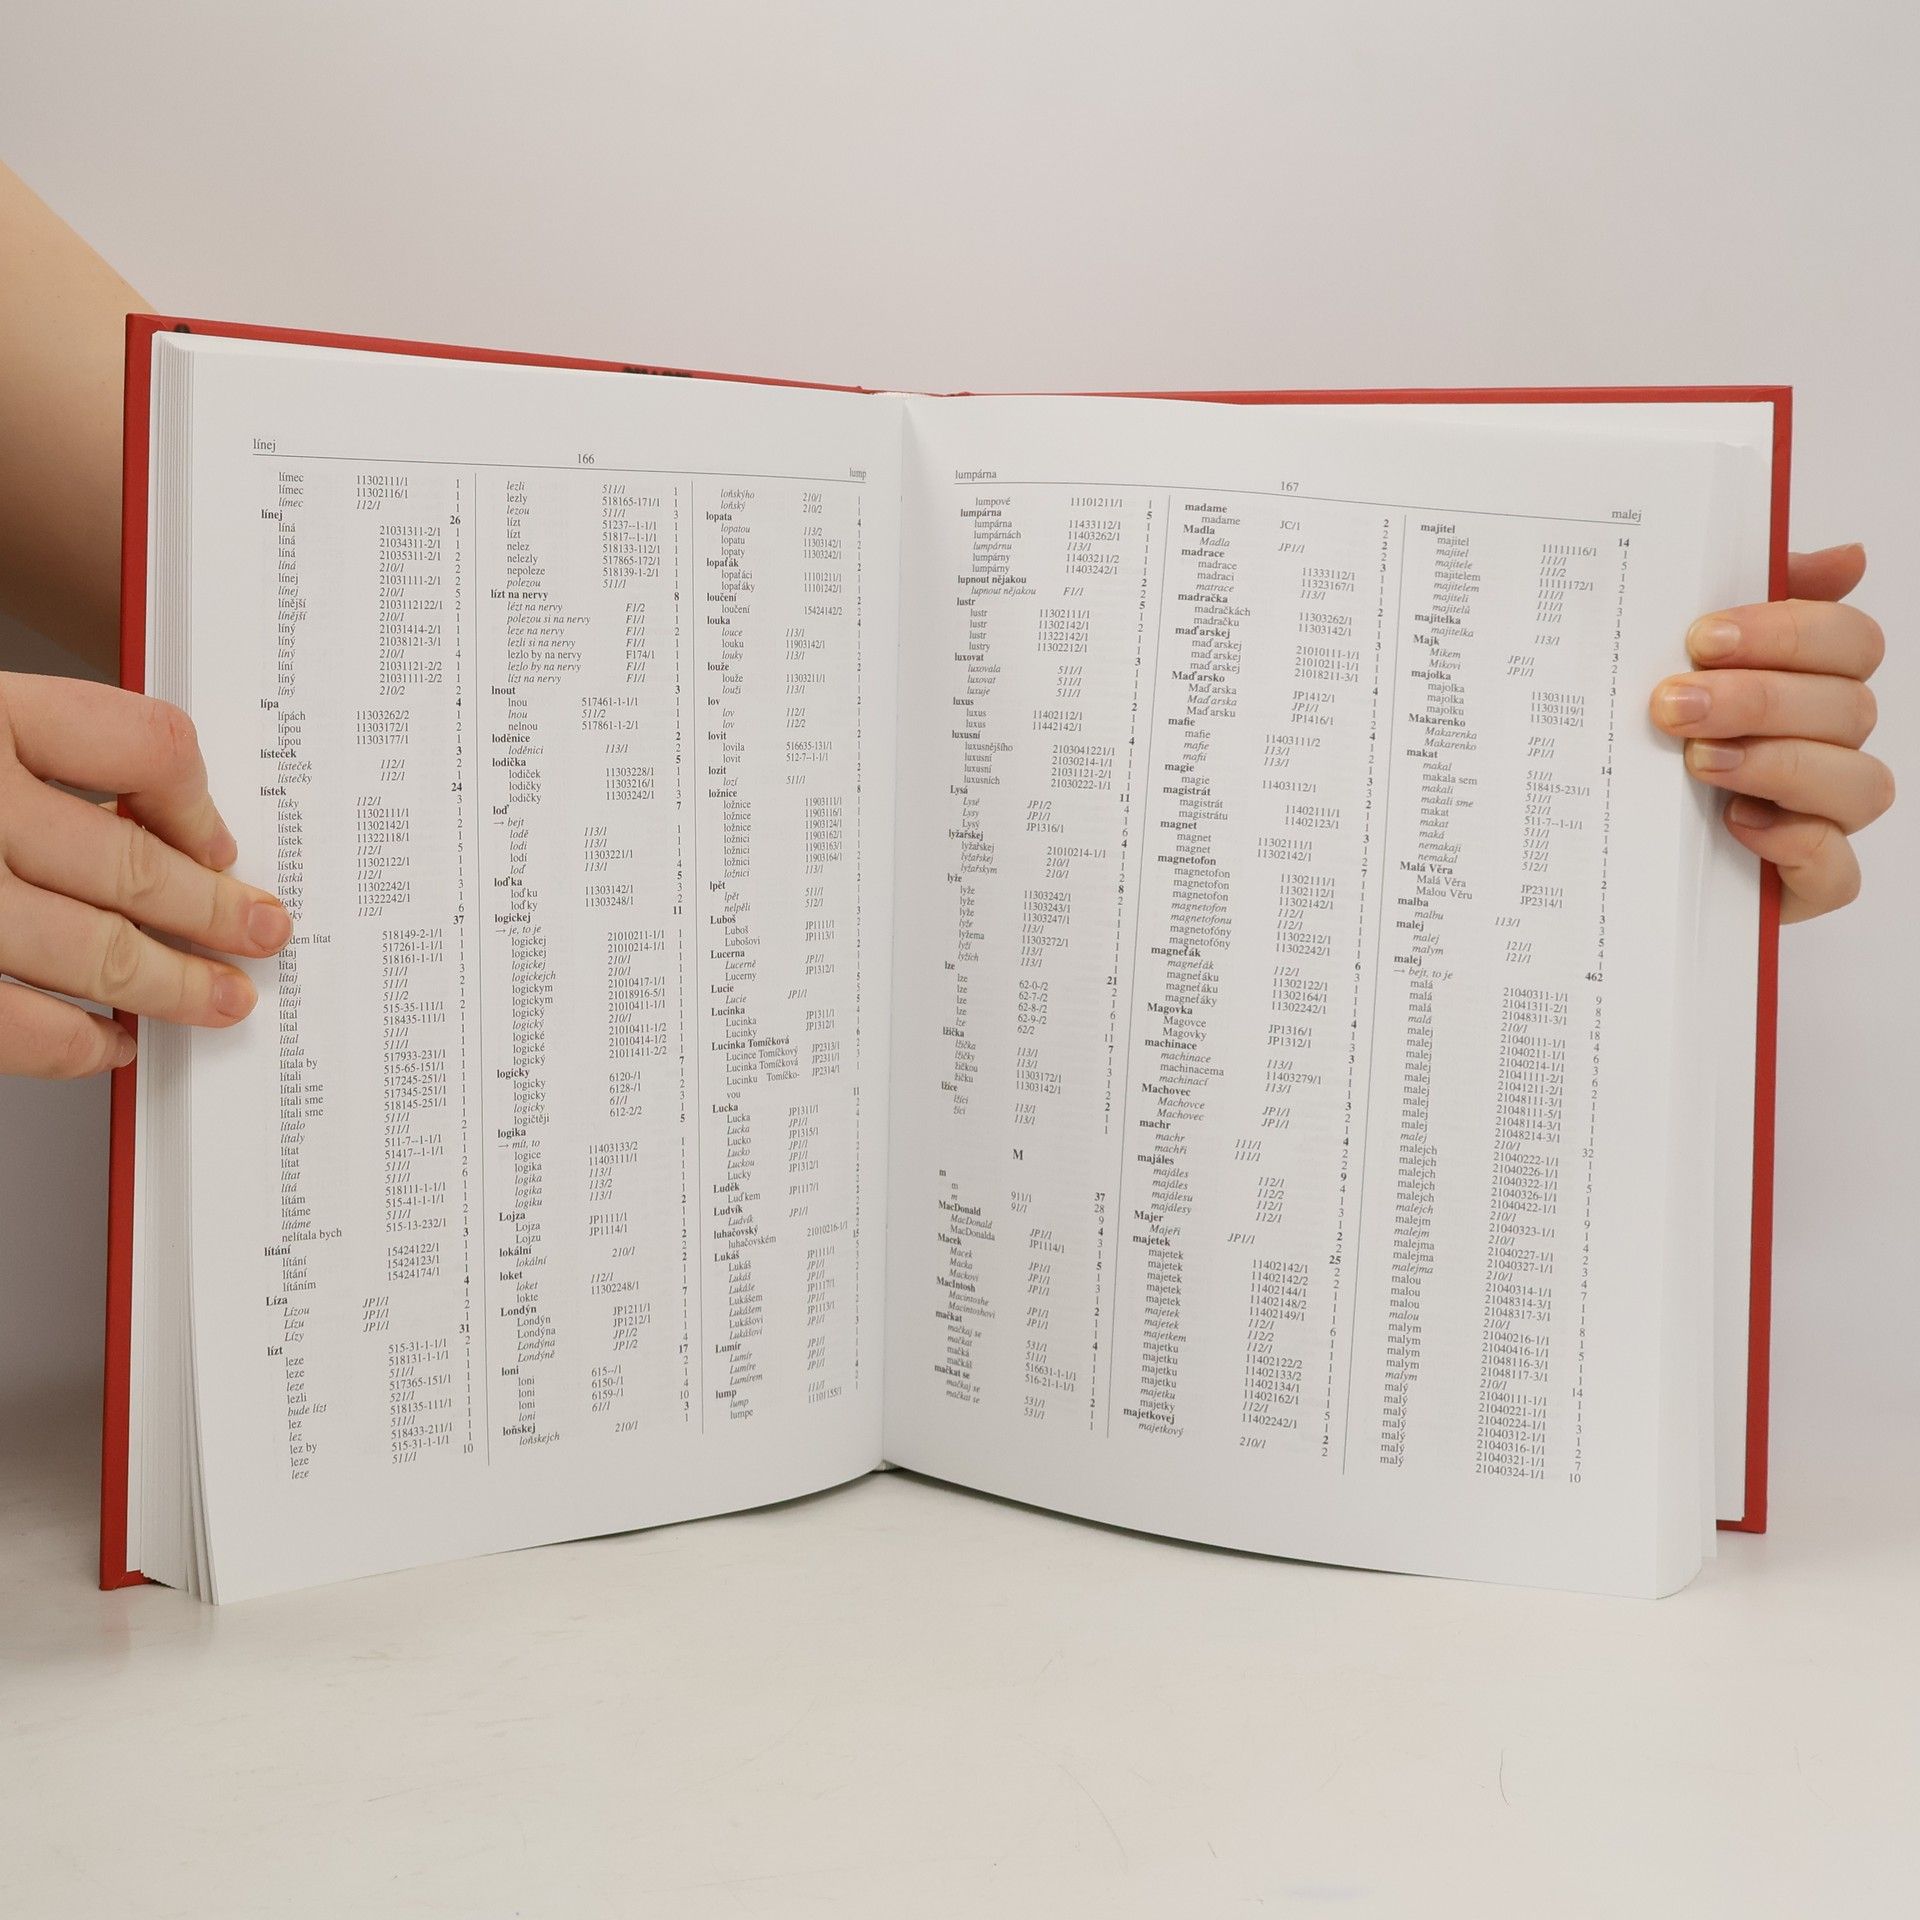 línej
166
lump
límec 11302111/1 1
límec 11302116/1 1
límec 112/1 1
línej 26
líná 21031311-2/1 1
líná 21034311-2/1 1
líná 21035311-2/1 2
líná 210/1 2
línej 21031111-2/1 2
línej 210/1 5
línější 2103112122/1 2
línější 210/1 1
líný 21031414-2/1 1
líný 21038121-3/1 1
líný 210/1 4
líní 21031121-2/2 1
líný 21031111-2/2 1
líný 210/2 2
lípa 4
lípách 11303262/2 1
lípou 11303172/1 2
lípou 11303177/1 1
lísteček 3
lísteček 112/1 2
lístečky 112/1 1
lístek 24
lísky 112/1 3
lístek 11302111/1 1
lístek 11302142/1 2
lístek 11322118/1 1
lístek 112/1 5
lístku 11302122/1 1
lístků 112/1 1
lístky 11302242/1 3
11322242/1 1
112/1 6
37
lítat 518149-2-1/1 1
517261-1-1/1 1
lítaj 518161-1-1/1 1
lítaj 511/1 3
lítaji 511/1 2
lítaji 511/2 1
lítal 515-35-111/1 2
lítal 518435-111/1 1
lítal 511/1 1
lítala 511/1 1
lítala by 517933-231/1 1
lítali 515-65-151/1 1
lítali sme 517245-251/1 1
lítali sme 517345-251/1 1
lítali sme 518145-251/1 1
lítalo 511/1 2
lítaly 511-7--1-1/1 1
lítat 51417--1-1/1 1
lítat 511/1 2
lítat 511/1 6
lítá 518111-1-1/1 1
lítám 515-41-1-1/1 1
lítáme 511/1 2
lítáme 515-13-232/1 1
nelítala bych
lítání 3
lítání 15424122/1 1
lítání 15424123/1 1
lítáním 15424174/1 1
Líza 4
Lízou JP1/1 1
Lízu JP1/1 2
Lízy JP1/1 1
lízt 31
leze 515-31-1-1/1 2
leze 518131-1-1/1 1
leze 511/1 1
lezli 517365-151/1 1
bude lízt 521/1 1
lez 518135-111/1 1
lez 511/1 1
lez by 518433-211/1 1
leze 515-31-1-1/1 1
leze 511/1 10
lezli 511/1 1
lezly 518165-171/1 1
lezou 511/1 3
lízt 51237--1-1/1 1
lízt 51817--1-1/1 1
nelez 518133-112/1 1
nelezly 517865-172/1 1
nepoleze 518139-1-2/1 1
polezou 511/1 1
lízt na nervy 8
lézt na nervy F1/2 1
polezou si na nervy F1/1 1
leze na nervy F1/1 2
lezli si na nervy F1/1 1
lezlo by na nervy F174/1 1
lezlo by na nervy F1/1 1
lízt na nervy F1/1 1
lnout 3
lnou 517461-1-1/1 1
lnou 511/2 1
nelnou 517861-1-2/1 1
loděnice 2
loděnici 113/1 2
lodička 5
lodiček 11303228/1 1
lodičky 11303216/1 1
lodičky 11303242/1 3
loď 7
→ bejt
lodě 113/1 1
lodi 113/1 1
lodí 11303221/1 1
loď 113/1 4
loďka 5
loďku 11303142/1 3
loďky 11303248/1 2
logickej 11
→ je, to je
logickej 21010211-1/1 1
logickej 21010214-1/1 1
logickej 210/1 1
logickejch 210/1 1
logickym 21010417-1/1 1
logickym 21018916-5/1 1
logický 21010411-1/1 1
logický 210/1 1
logické 21010411-1/2 1
logické 21010414-1/2 1
logický 21011411-2/2 1
logicky 7
logicky 6120-/1 1
logicky 6128-/1 2
logicky 61/1 3
logičtěji 612-2/2 1
logika 5
→ mít, to
logice 11403133/2 1
logika 11403111/1 1
logika 113/1 1
logika 113/2 1
logiku 113/1 1
Lojza 2
Lojza JP1111/1 1
Lojzu JP1114/1 1
lokální 2
lokální 210/1 2
loket 2
loket 112/1 1
lokte 11302248/1 1
Londýn 7
Londýn JP1211/1 1
Londýna JP1212/1 1
Londýna JP1/2 1
Londýně JP1/2 4
loni 17
loni 615--/1 2
loni 6150-/1 1
loni 6159-/1 4
loni 61/1 10
loňskej 3
loňskejch 210/1 1
loňskýho 210/1 1
loňský 210/2 1
lopata 4
lopatou 113/2 1
lopatu 11303142/1 2
lopaty 11303242/1 1
lopaťák 2
lopaťáci 11101211/1 1
lopaťáky 11101242/1 1
loučení 2
loučení 15424142/2 2
louka 4
louce 113/1 1
louku 11903142/1 1
louky 113/1 2
louže 2
louže 11303211/1 1
louži 113/1 1
lov 2
lov 112/1 1
lov 112/2 1
lovit 2
lovila 516635-131/1 1
lovit 512-7--1-1/1 1
lozit 2
lozí 511/1 2
ložnice 8
ložnice 11903111/1 1
ložnice 11903116/1 1
ložnice 11903124/1 1
ložnici 11903162/1 1
ložnici 11903163/1 1
ložnici 11903164/1 2
ložnici 113/1 1
lpět 2
lpět 511/1 1
nelpěli 512/1 1
Luboš 3
Luboš JP1111/1 2
Lubošovi JP1113/1 1
Lucerna 2
Lucerně JP1/1 1
Lucerny JP1312/1 1
Lucie 5
Lucie JP1/1 5
Lucinka 5
Lucinka JP1311/1 4
Lucinky JP1312/1 1
Lucinka Tomíčková
Lucince Tomíčkový JP2313/1
Lucinka Tomíčková JP2311/1
Lucinku Tomíčko- JP2314/1
vou
Lucka 11
Lucka JP1311/1
Lucka JP1/1
Lucko JP1315/1
Lucko JP1/1
Luckou JP1/1
Lucky JP1312/1
Luděk
Luďkem JP1117/1
Ludvík
Ludvík JP1/1
luhačovský
luhačovském 21010216-1/1
Lukáš 15
Lukáš JP1111/1
Lukáš JP1/1
Lukáše JP1/1
Lukášem JP1117/1
Lukášem JP1/1
Lukášovi JP1113/1
Lukášovi JP1/1
Lumír
Lumír JP1/1
Lumíre JP1/1
Lumírem JP1/1
lump
lump 111/1
lumpe 11101155/1
lumpárna
167
malej
lumpové 11101211/1 1
lumpárna 5
lumpárna 11433112/1 1
lumpárnách 11403262/1 1
lumpárnu 113/1 1
lumpárny 11403211/2 1
lumpárny 11403242/1 1
lupnout nějakou 2
lupnout nějakou F1/1 2
lustr 5
lustr 11302111/1 1
lustr 11302142/1 2
lustr 11322142/1 1
lustry 11302212/1 1
luxovat 3
luxovala 511/1 1
luxovat 511/1 1
luxuje 511/1 1
luxus 2
luxus 11402112/1 1
luxus 11442142/1 1
luxusní 4
luxusnějšího 2103041221/1 1
luxusní 21030214-1/1 1
luxusní 21031121-2/1 1
luxusních 21030222-1/1 1
Lysá 11
Lysé JP1/2 4
Lysy JP1/1 1
Lysý JP1316/1 6
lyžařskej 4
lyžařskej 21010214-1/1 1
lyžařskej 210/1 1
lyžařskym 210/1 2
lyže 8
lyže 11303242/1 2
lyže 11303243/1 1
lyže 11303247/1 1
lyže 113/1 1
lyžema 11303272/1 1
lyží 113/1 1
lyžích 113/1 1
lze 21
lze 62-0-/2 2
lze 62-7-/2 1
lze 62-8-/2 6
lze 62-9-/2 1
lze 62/2 11
lžička 7
lžička 113/1 1
lžičky 113/1 3
lžičkou 11303172/1 1
žičku 11303142/1 2
lžíce 2
lžíci 113/1 1
žíci 113/1 1
M
m 37
m 911/1 28
m 91/1 9
MacDonald 4
MacDonald JP1/1 3
MacDonalda JP1114/1 1
Macek 5
Macek JP1/1 1
Macka JP1/1 3
Mackovi JP1/1 1
MacIntosh 2
Macintoshe JP1/1 1
Macintoshovi JP1/1 1
mačkat 4
mačkaj se 531/1 1
mačkat 511/1 1
mačká 516631-1-1/1 1
mačkál 516-21-1-1/1 1
mačkat se 2
mačkaj se 531/1 1
mačkat se 531/1 1
madame 2
madame JC/1 2
Madla 2
Madla JP1/1 2
madrace 3
madrace 11333112/1 1
madraci 11323167/1 1
matrace 113/1 1
madračka 2
madračkách 11303262/1 1
madračku 11303142/1 1
maďarskej 3
maďarskej 21010111-1/1 1
maďarskej 21010211-1/1 1
maďarskej 21018211-3/1 1
Maďarsko 4
Maďarska JP1412/1 1
Maďarska JP1/1 1
Maďarsku JP1416/1 2
mafie 4
mafie 11403111/2 1
mafie 113/1 2
mafii 113/1 1
magie 3
magie 11403112/1 3
magistrát 2
magistrát 11402111/1 1
magistrátu 11402123/1 1
magnet 3
magnet 11302111/1 1
magnet 11302142/1 2
magnetofon 7
magnetofon 11302111/1 1
magnetofon 11302112/1 1
magnetofon 11302142/1 1
magnetofon 112/1 1
magnetofonu 112/1 1
magnetofóny 11302212/1 1
magnetofóny 11302242/1 1
magneťák 6
magneťák 112/1 3
magneťáku 11302122/1 1
magneťáku 11302164/1 1
magneťáky 11302242/1 1
Magovka 4
Magovce JP1316/1 1
Magovky JP1312/1 3
machinace 3
machinace 113/1 1
machinacema 11403279/1 1
machinací 113/1 1
Machovec 3
Machovce JP1/1 2
Machovec JP1/1 1
machr 4
machr 111/1 2
machři 111/1 2
majáles 9
majáles 112/1 4
majáles 112/2 1
majálesu 112/1 3
majálesy 112/1 1
Majer 2
Majeři JP1/1 2
majetek 25
majetek 11402142/1 2
majetek 11402142/2 2
majetek 11402144/1 1
majetek 11402148/2 1
majetek 11402149/1 1
majetek 112/1 6
majetkem 112/2 1
majetku 112/1 1
majetku 11402122/2 1
majetku 11402133/2 1
majetku 11402134/1 1
majetku 11402162/1 1
majetky 112/1 5
majetkovej 11402242/1 1
majetkový 2
210/1 2
majitel 14
majitel 11111116/1 1
majitel 111/1 5
majitele 111/2 1
majitelem 11111172/1 2
majitelem 111/1 1
majiteli 111/1 3
majitelů 111/1 1
majitelka 3
majitelka 113/1 3
Majk 3
Mikem JP1/1 2
Mikovi JP1/1 1
majolka 3
majolka 11303111/1 1
majolka 11303119/1 1
majolku 11303142/1 1
Makarenko 2
Makarenka JP1/1 1
Makarenko JP1/1 1
makat 14
makal 511/1 1
makala sem 518415-231/1 1
makali 511/1 1
makali sme 521/1 2
makat 511-7--1-1/1 1
makat 511/1 2
maká 511/1 1
nemakaji 512/1 4
nemakal 512/1 1
Malá Věra 2
Malá Věra JP2311/1 1
Malou Věru JP2314/1 1
malba 3
malbu 113/1 3
malej 5
malej 121/1 4
malym 121/1 1
malej 462
→ bejt, to je
malá 21040311-1/1 9
malá 21041311-2/1 8
malá 21048311-3/1 2
malá 210/1 18
malej 21040111-1/1 4
malej 21040211-1/1 6
malej 21040214-1/1 3
malej 21041111-2/1 6
malej 21041211-2/1 2
malej 21048111-3/1 1
malej 21048111-5/1 1
malej 21048114-3/1 1
malej 21048214-3/1 1
malej 210/1 32
malejch 21040222-1/1 1
malejch 21040226-1/1 1
malejch 21040322-1/1 5
malejch 21040326-1/1 1
malejch 21040422-1/1 1
malejch 210/1 9
malejm 21040323-1/1 1
malejm 210/1 4
malejma 21040227-1/1 2
malejma 21040327-1/1 3
malejma 210/1 4
malou 21040314-1/1 7
malou 21048314-3/1 1
malou 21048317-3/1 1
malou 210/1 8
malym 21040216-1/1 1
malym 21040416-1/1 5
malym 21048116-3/1 1
malym 21048117-3/1 1
malym 210/1 14
malý 21040111-1/1 1
malý 21040221-1/1 1
malý 21040224-1/1 3
malý 21040312-1/1 1
malý 21040316-1/1 2
malý 21040321-1/1 7
malý 21040324-1/1 10